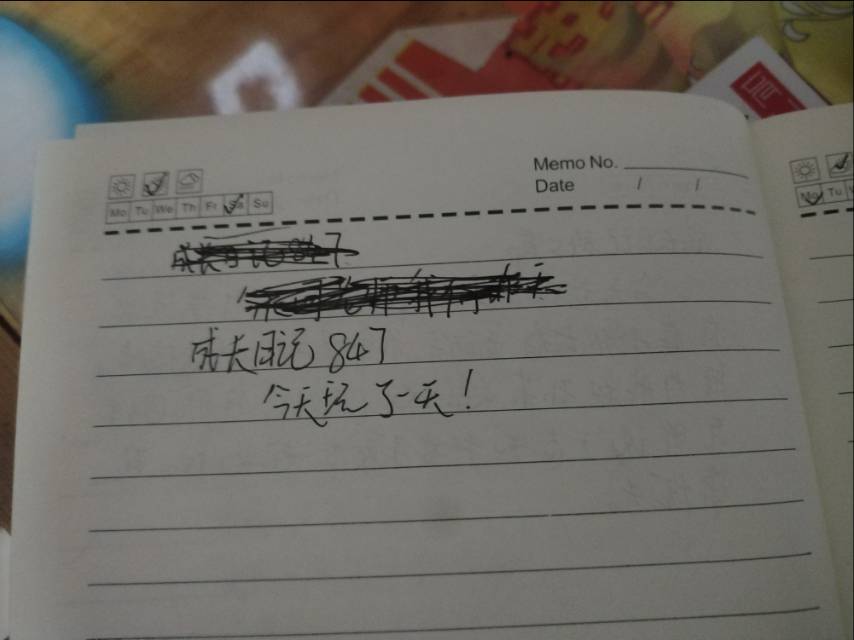 Memo No.
Date / /
Mo Tu We Th Fr Sa Su
Mo Tu
成长日记 847
成长日记 847
今天玩了一天!